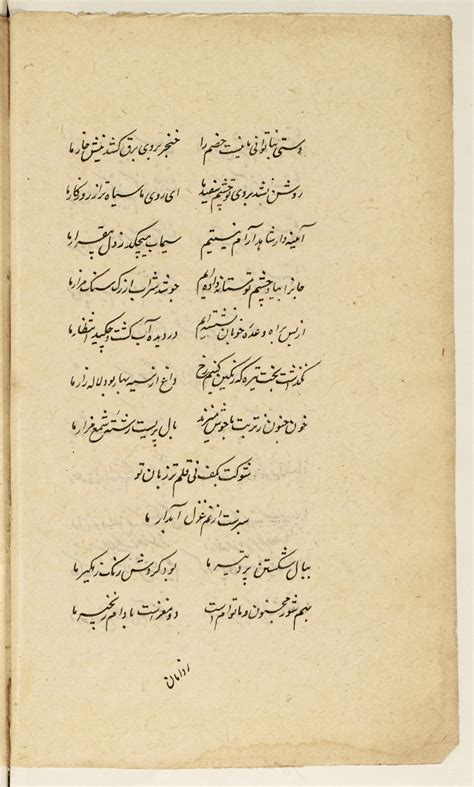 دستی بناتوانی ما نیست خصم را خنجر بروی برق کشد نبش خار ما
روشن نشد بروی تو چشم سفید ما ای روی ما سیاه تر از روزگار ما
آئینه دار شاهد آرام نیستیم سیماب میچکد ز دل بیقرار ما
جانرا بیاد چشم تو مستانه داده ایم جوشد شراب از رگ سنگ مزار ما
از بس براه وعده خوبان نشسته ایم در دیده آب گشت و چکید انتظار ما
نگذاشت بخت تیره که رنگین کنیم رخ داغ از سیه بهار بود لاله زار ما
خون جنون ز تربت ما جوش میزند بال پریست رشته شمع مزار ما
شوکت بکف نی قلم تر زبان تو
سبز است از غزل آبدار ما
ببال شکستن پرد تیر ما بود گردش رنگ زهگیر ما
بهم شور مجنون و ما توام است دو مغز است بادام زنجیر ما